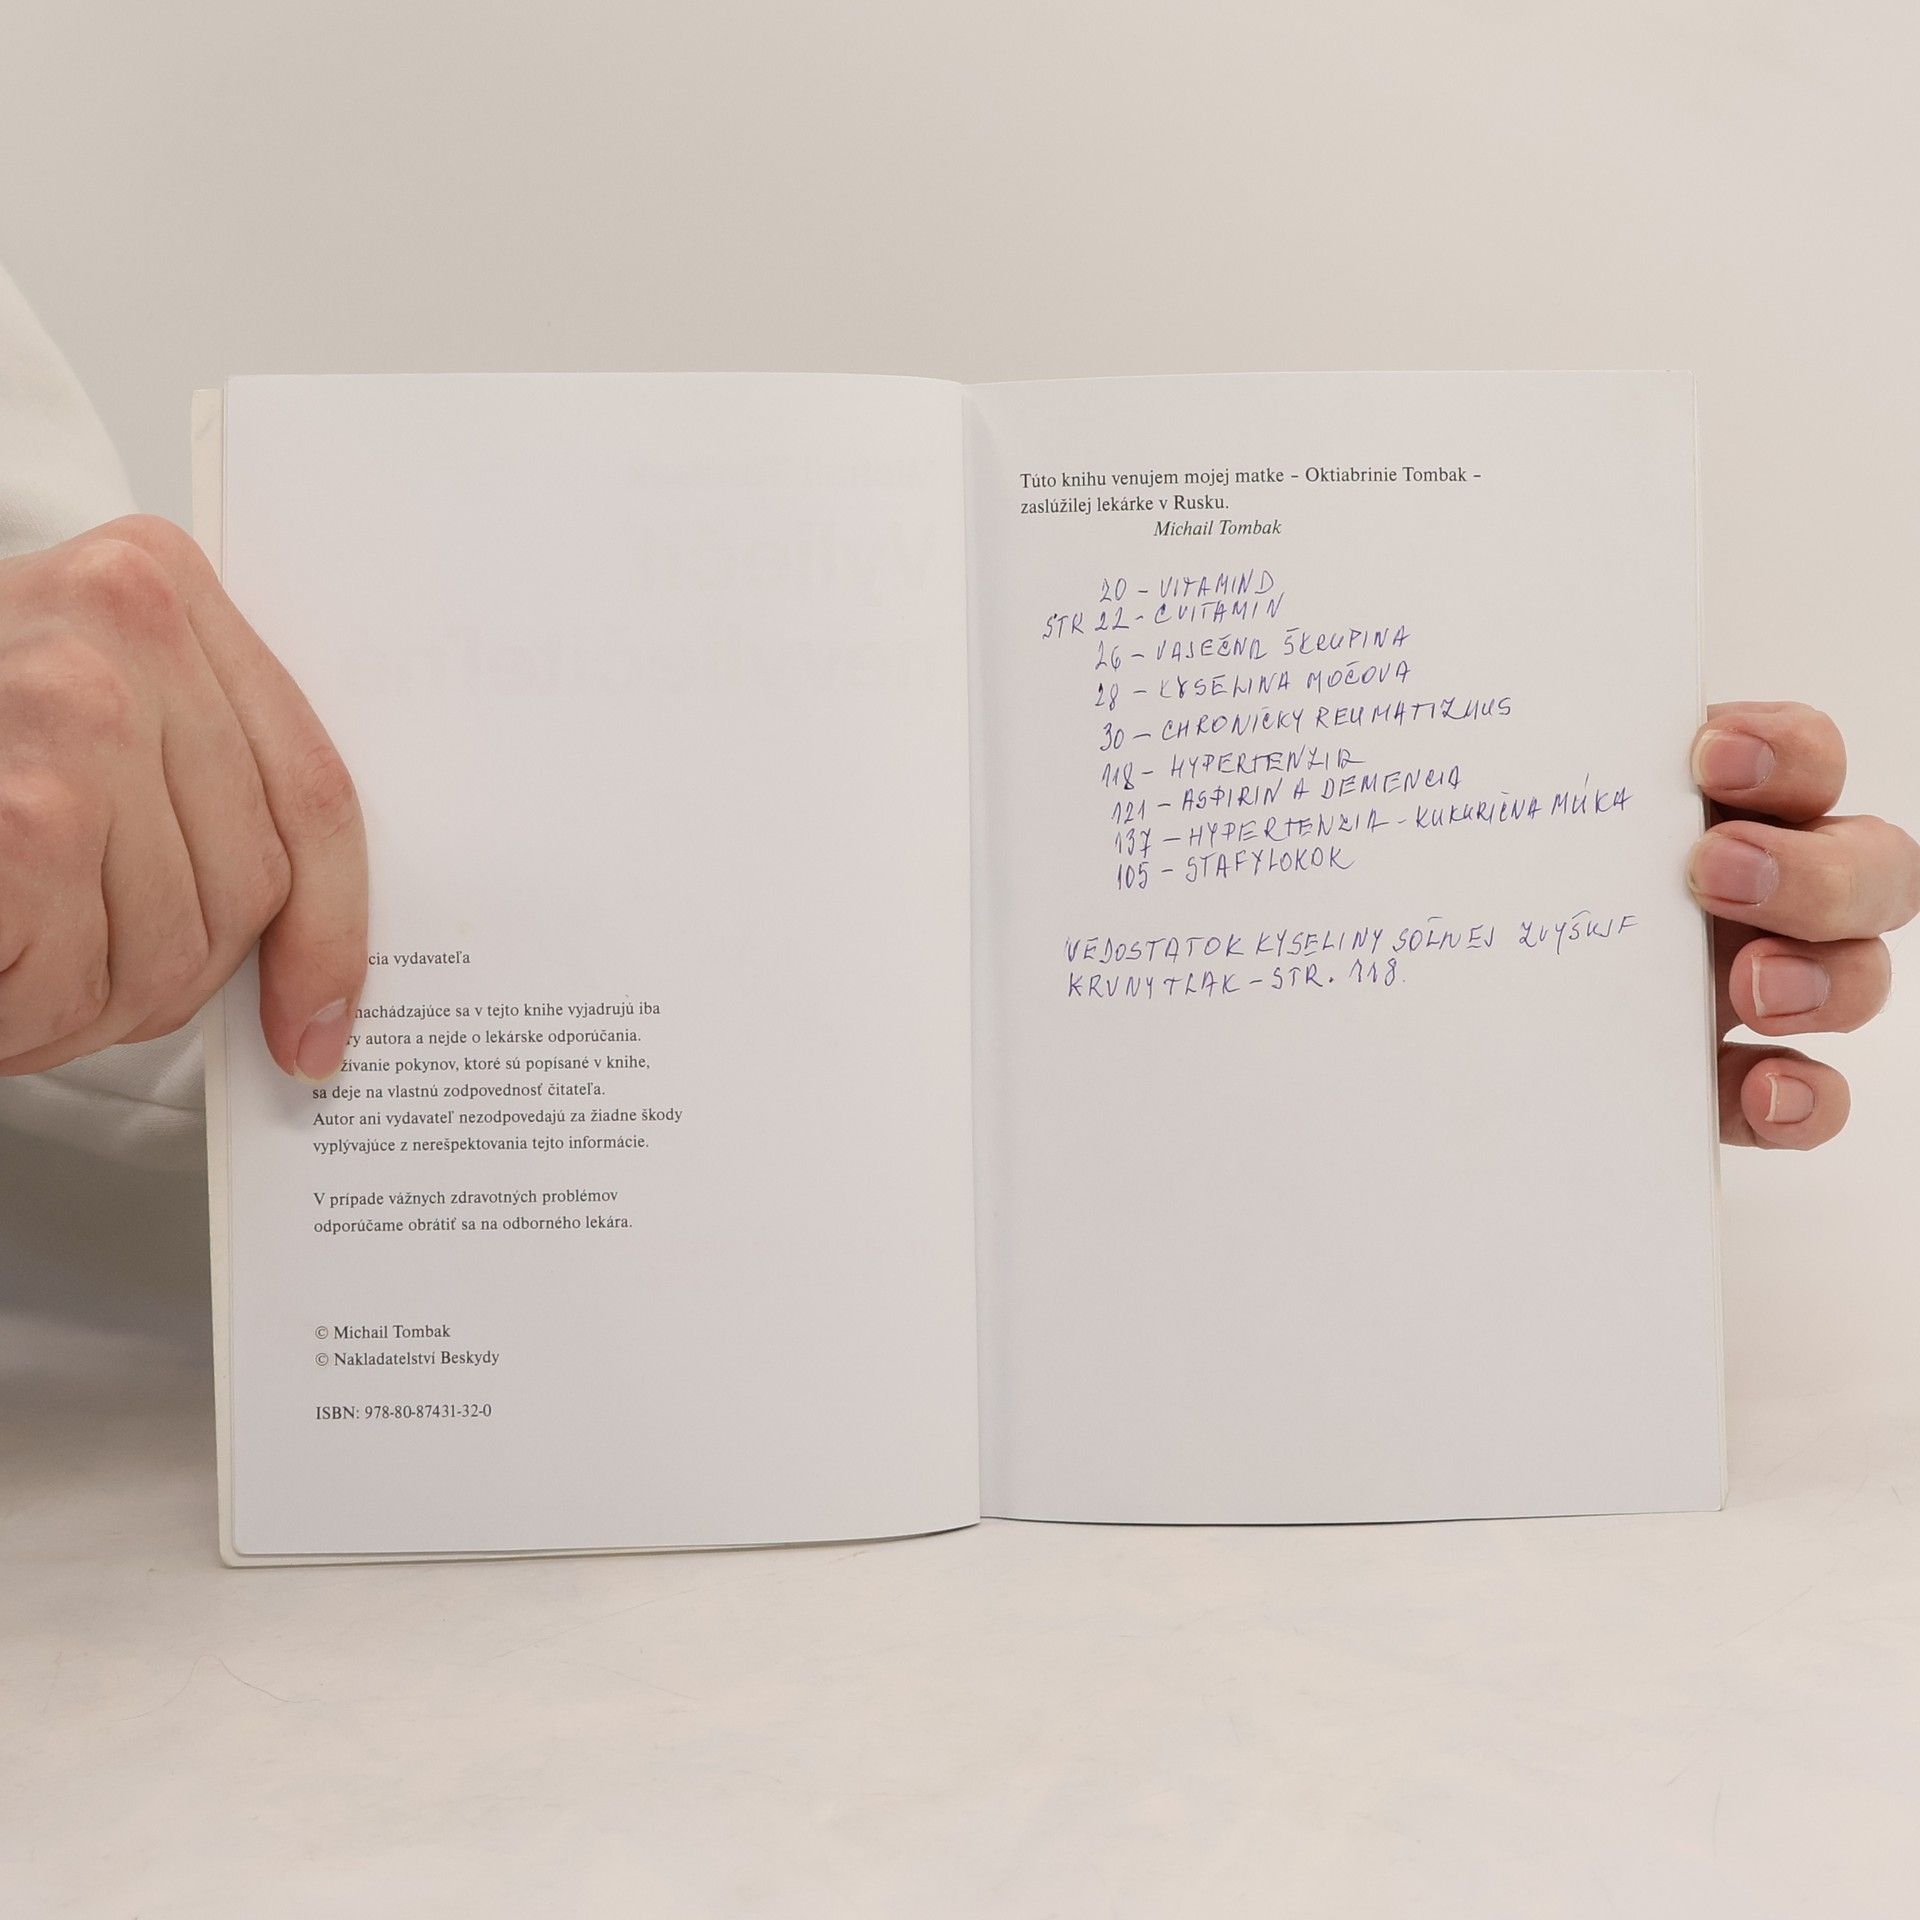 cia vydavateľa
nachádzajúce sa v tejto knihe vyjadrujú iba
ry autora a nejde o lekárske odporúčania.
žívanie pokynov, ktoré sú popísané v knihe,
sa deje na vlastnú zodpovednosť čitateľa.
Autor ani vydavateľ nezodpovedajú za žiadne škody
vyplývajúce z nerešpektovania tejto informácie.
V prípade vážnych zdravotných problémov
odporúčame obrátiť sa na odborného lekára.
© Michail Tombak
© Nakladatelství Beskydy
ISBN: 978-80-87431-32-0
Túto knihu venujem mojej matke – Oktiabrinie Tombak –
zaslúžilej lekárke v Rusku.
Michail Tombak
20 – VITAMIN D
STR 22 - C VITAMIN
26 – VAJEČNA ŠKRUPINA
28 – KYSELINA MOČOVA
30 – CHRONICKY REUMATIZMUS
118 – HYPERTENZIA
121 – ASPIRIN A DEMENCIA
137 – HYPERTENZIA - KUKURIČNA MÚKA
105 – STAFYLOKOK
NEDOSTATOK KYSELINY SOĽNEJ ZVYŠUJE
KRVNY TLAK – STR. 118.